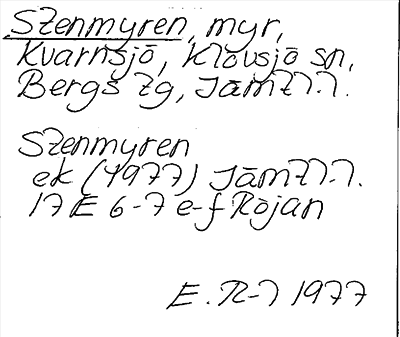 Stenmyren, myr,
Kvarnsjö, Klövsjö sn,
Bergs tg, Jämtl.l.
Stenmyren
ek (1977) Jämtl.l.
17 E 6-7 e-f Röjan
E. R-l 1977